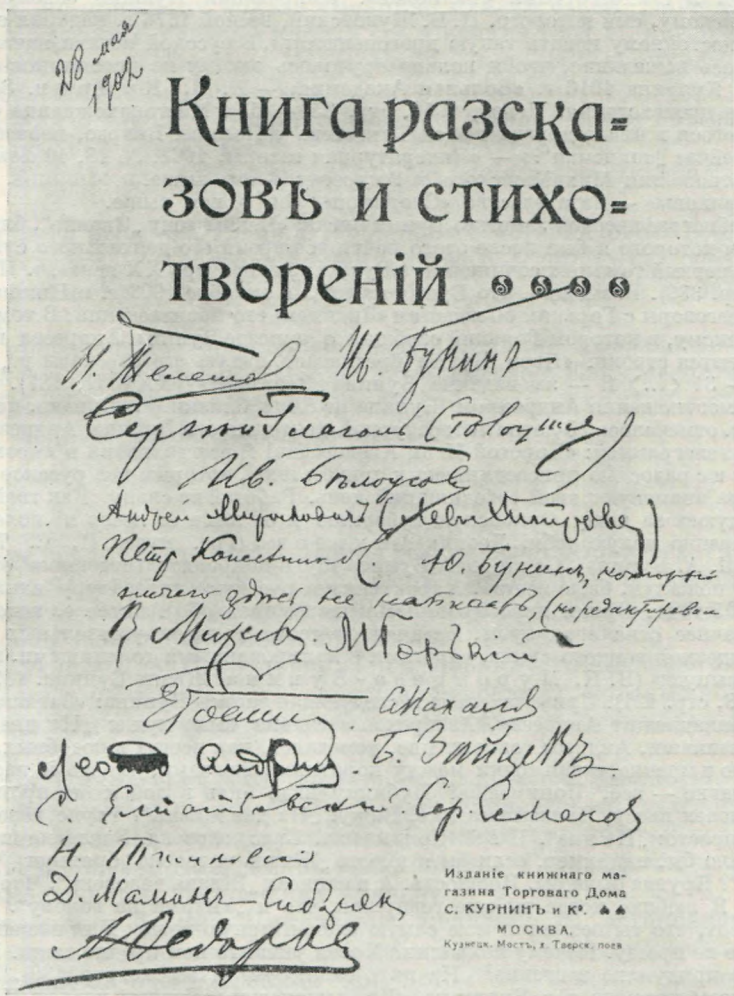 28 мая
1902
Книга разска=
зовъ и стихо=
творенiй
Н. Телешов Ив. Бунинъ
Сергей Глаголь (
Ив. Бѣлоусов
Андрей (
Петр Ю. Бунинъ, который
ничего здесь не написавъ, (но редактировал
В Михеев М Горькiй
Леонид Андреев. Б. Зайцевъ
С. Елпатьевский. Сер. Семенов
Н. Тимковский
Д. Маминъ Сибиряк
А Федоров
Изданiе книжнаго ма-
газина Торговаго Дома
С. КУРНИНЪ и Ко.
МОСКВА.
Кузнецк. Мостъ, г. Тверск. поев